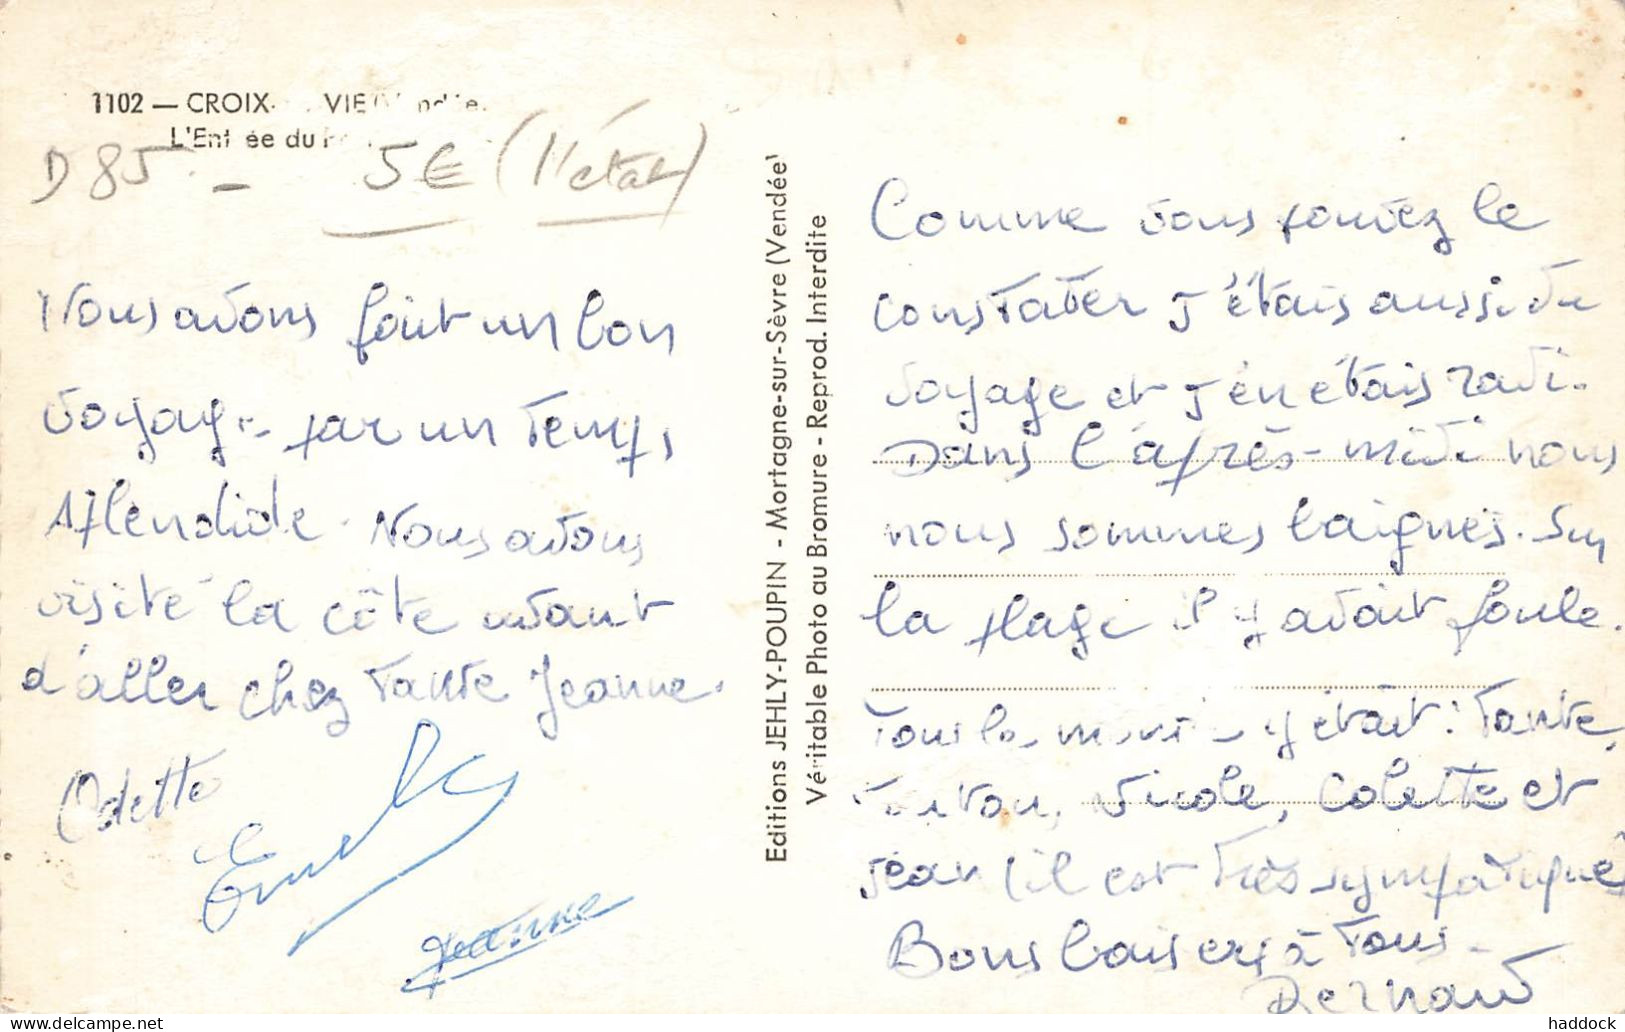 1102 — CROIX- VIE
L'Entrée du
D 85 - 5€ (l'état)
Nous avons fait un bon
voyage par un temps
splendide. Nous avons
visité la côte avant
d'aller chez Tante Jeanne.
Odette
Jeanne
Editions JEHLY-POUPIN - Mortagne-sur-Sèvre (Vendée)
Véritable Photo au Bromure - Reprod. Interdite
Comme vous pouvez le
constater j'étais aussi du
voyage et j'en étais ravi.
Dans l'après-midi nous
nous sommes baignés. Sur
la plage il y avait foule.
Tout le monde y était : Tante,
Tonton, Nicole, Colette et
Jean (il est très sympatique)
Bons baisers à Tous -
Bernard
haddock